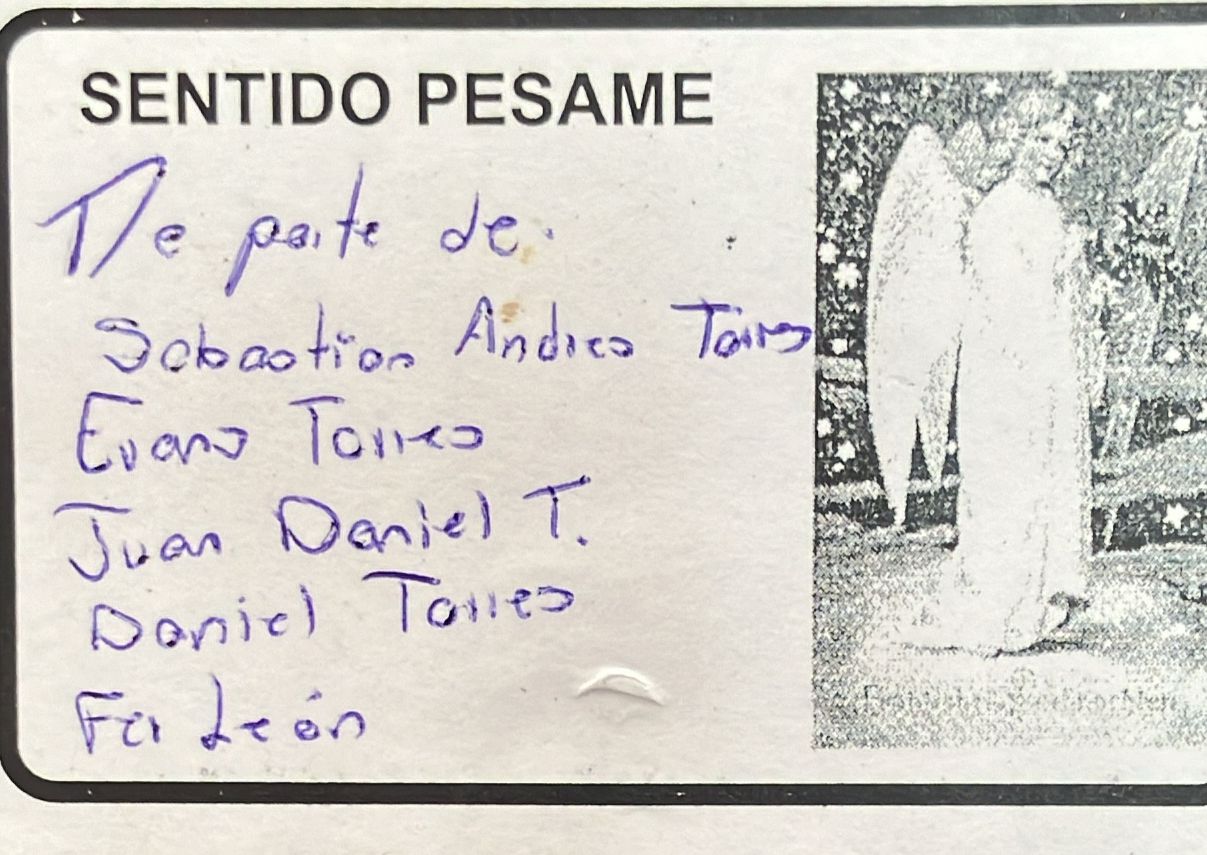 SENTIDO PESAME
De parte de:
Sebastian Andres Torres
Evans Torres
Juan Daniel T.
Daniel Torres
León